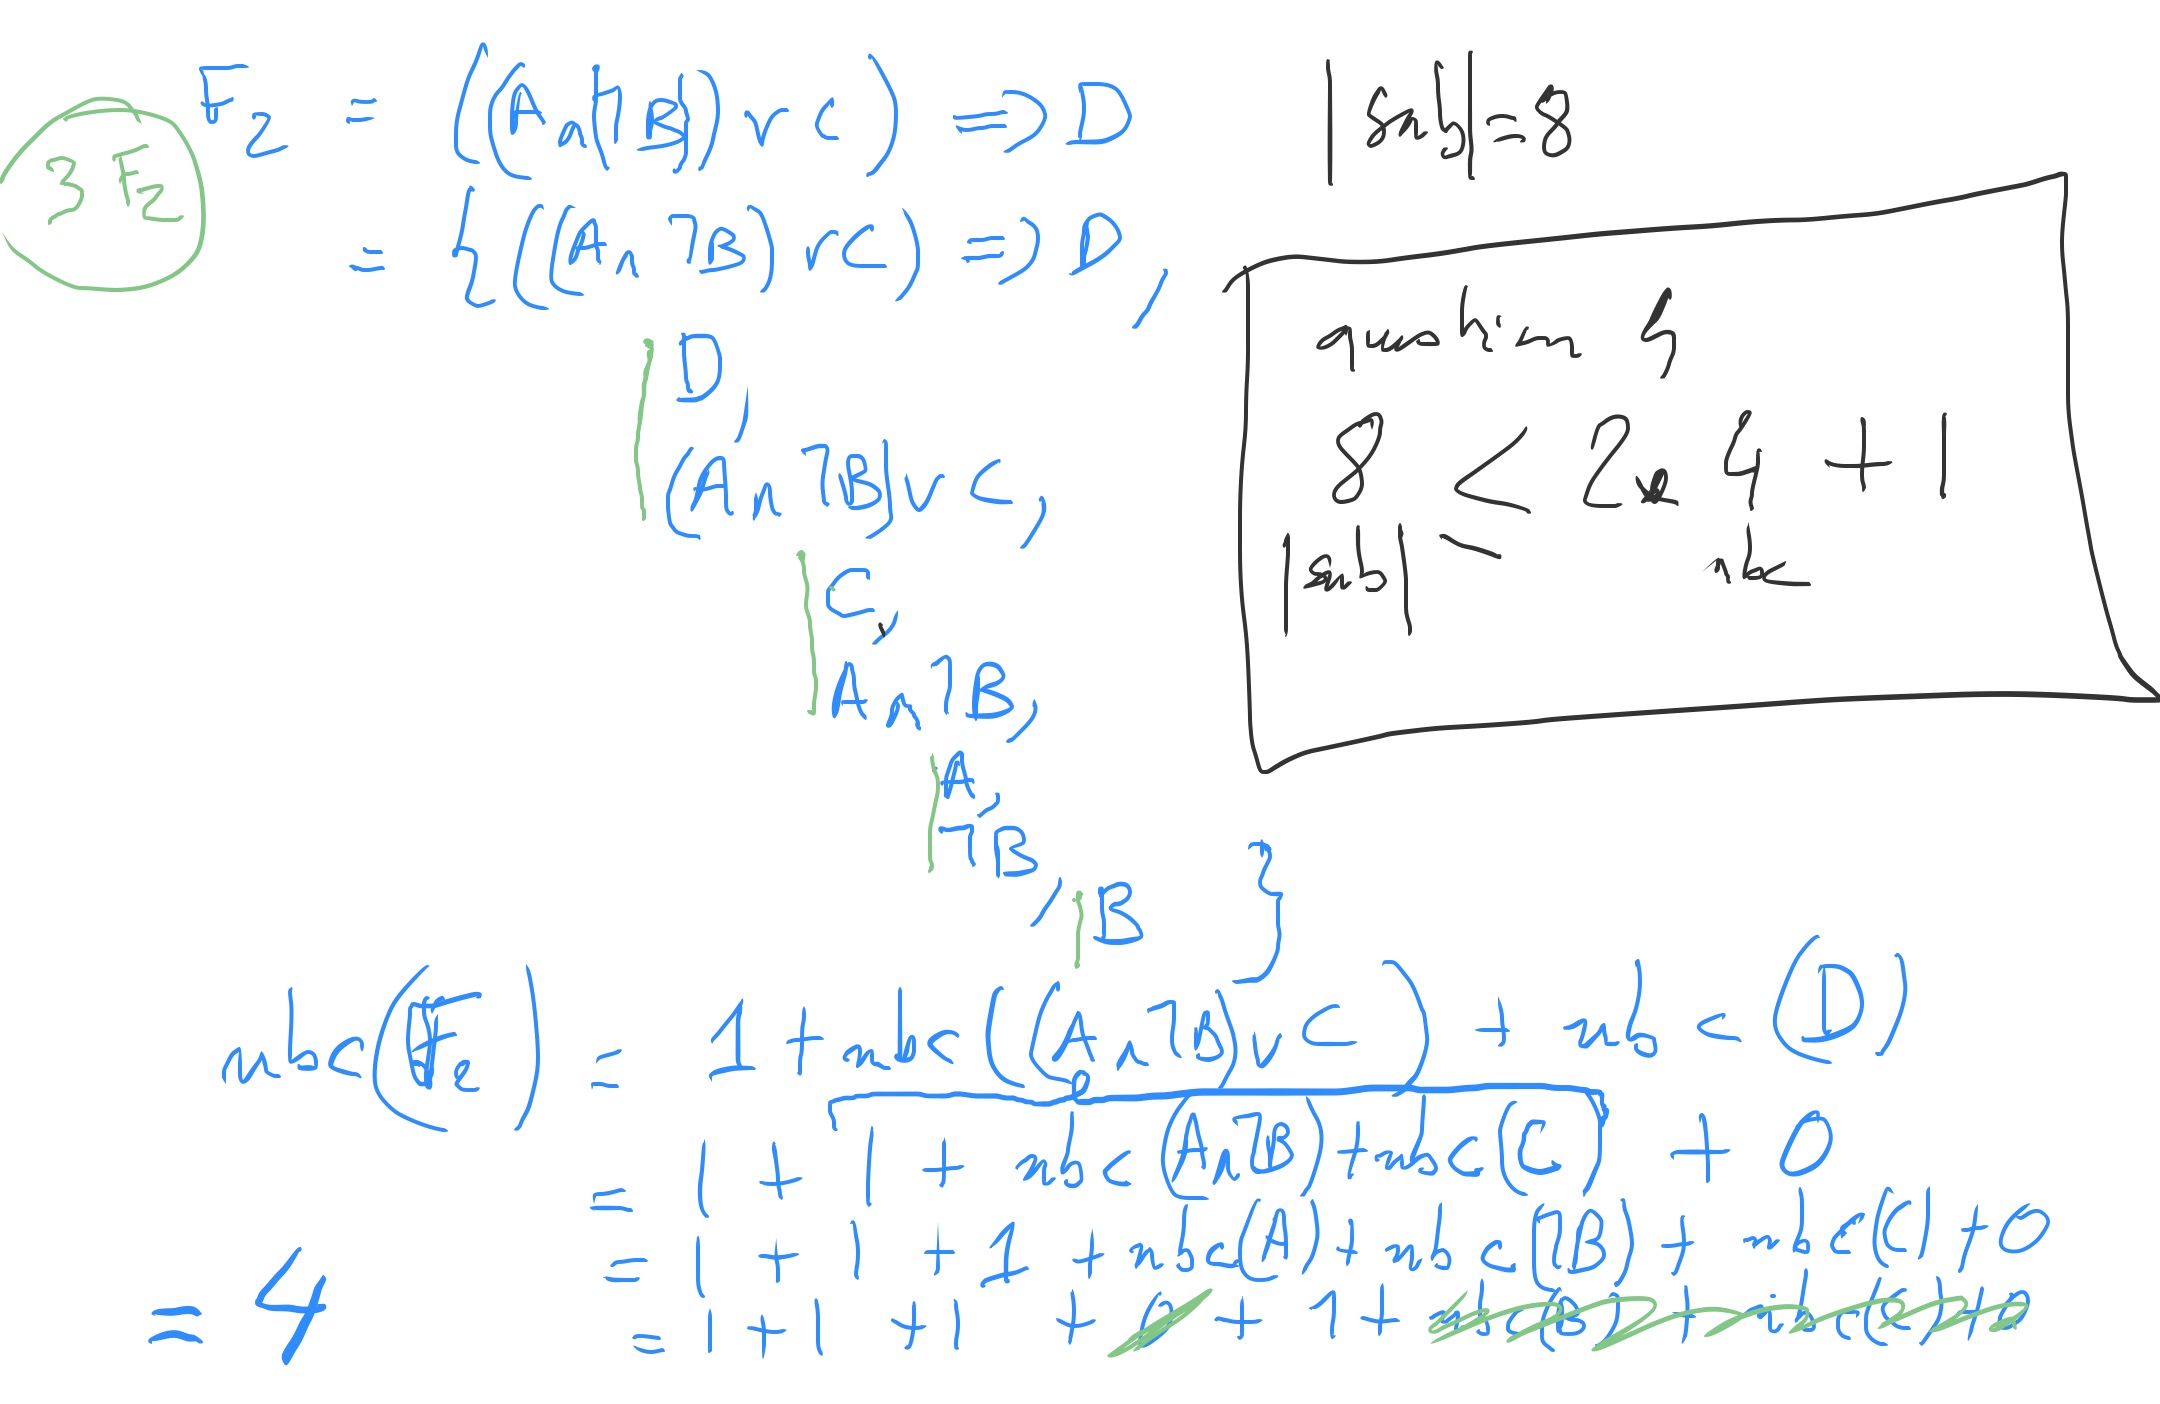 3 F₂
F₂ = ((A ∧ ¬B) ∨ C) ⇒ D
|sub| = 8
= {((A ∧ ¬B) ∨ C) ⇒ D,
D,
(A ∧ ¬B) ∨ C,
C,
A ∧ ¬B,
A,
¬B,
B }
question 4
8 < 2 × 4 + 1
|sub| ≤ nbc
nbc(F₂) = 1 + nbc((A ∧ ¬B) ∨ C) + nbc(D)
= 1 + 1 + nbc(A ∧ ¬B) + nbc(C) + 0
= 1 + 1 + 1 + nbc(A) + nbc(¬B) + nbc(C) + 0
= 1 + 1 + 1 + 0 + 1 + nbc(B) + nbc(C) + 0
= 4